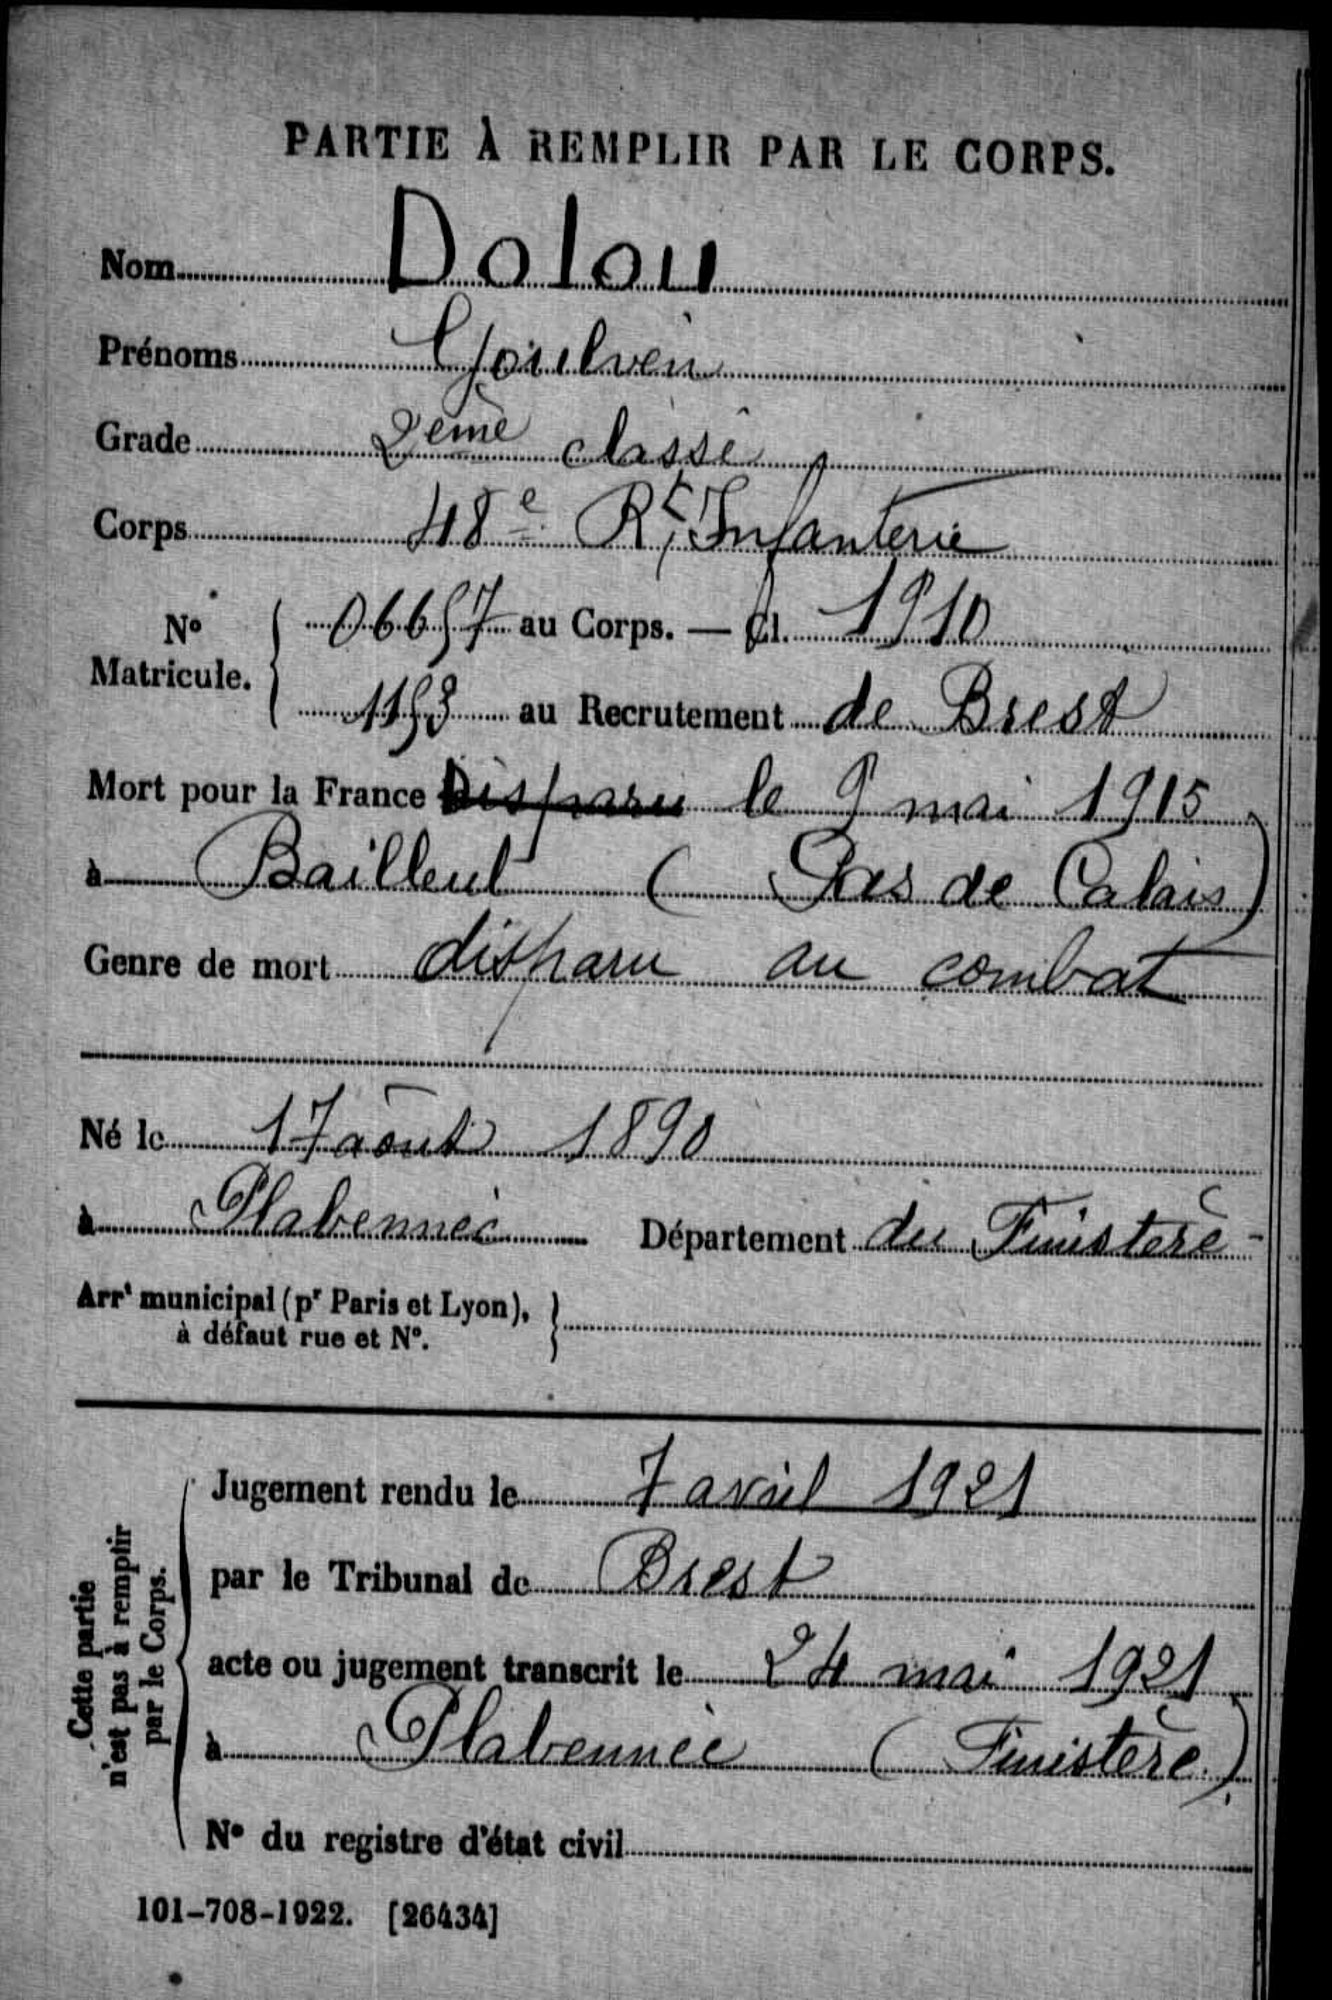 PARTIE À REMPLIR PAR LE CORPS.
Nom Dolou
Prénoms Goulven
Grade 2ème classe
Corps 48e Rt Infanterie
No Matricule. 06657 au Corps. — Cl. 1910
1153 au Recrutement de Brest
Mort pour la France Disparu le 9 mai 1915
à Bailleul (Pas de Calais)
Genre de mort disparu au combat
Né le 17 août 1890
à Plabennec Département du Finistère
Arrt municipal (pr Paris et Lyon),
à défaut rue et No.
Cette partie
n'est pas à remplir
par le Corps.
Jugement rendu le 7 avril 1921
par le Tribunal de Brest
acte ou jugement transcrit le 24 mai 1921
à Plabennec (Finistère)
No du registre d'état civil
101-708-1922. [26434]